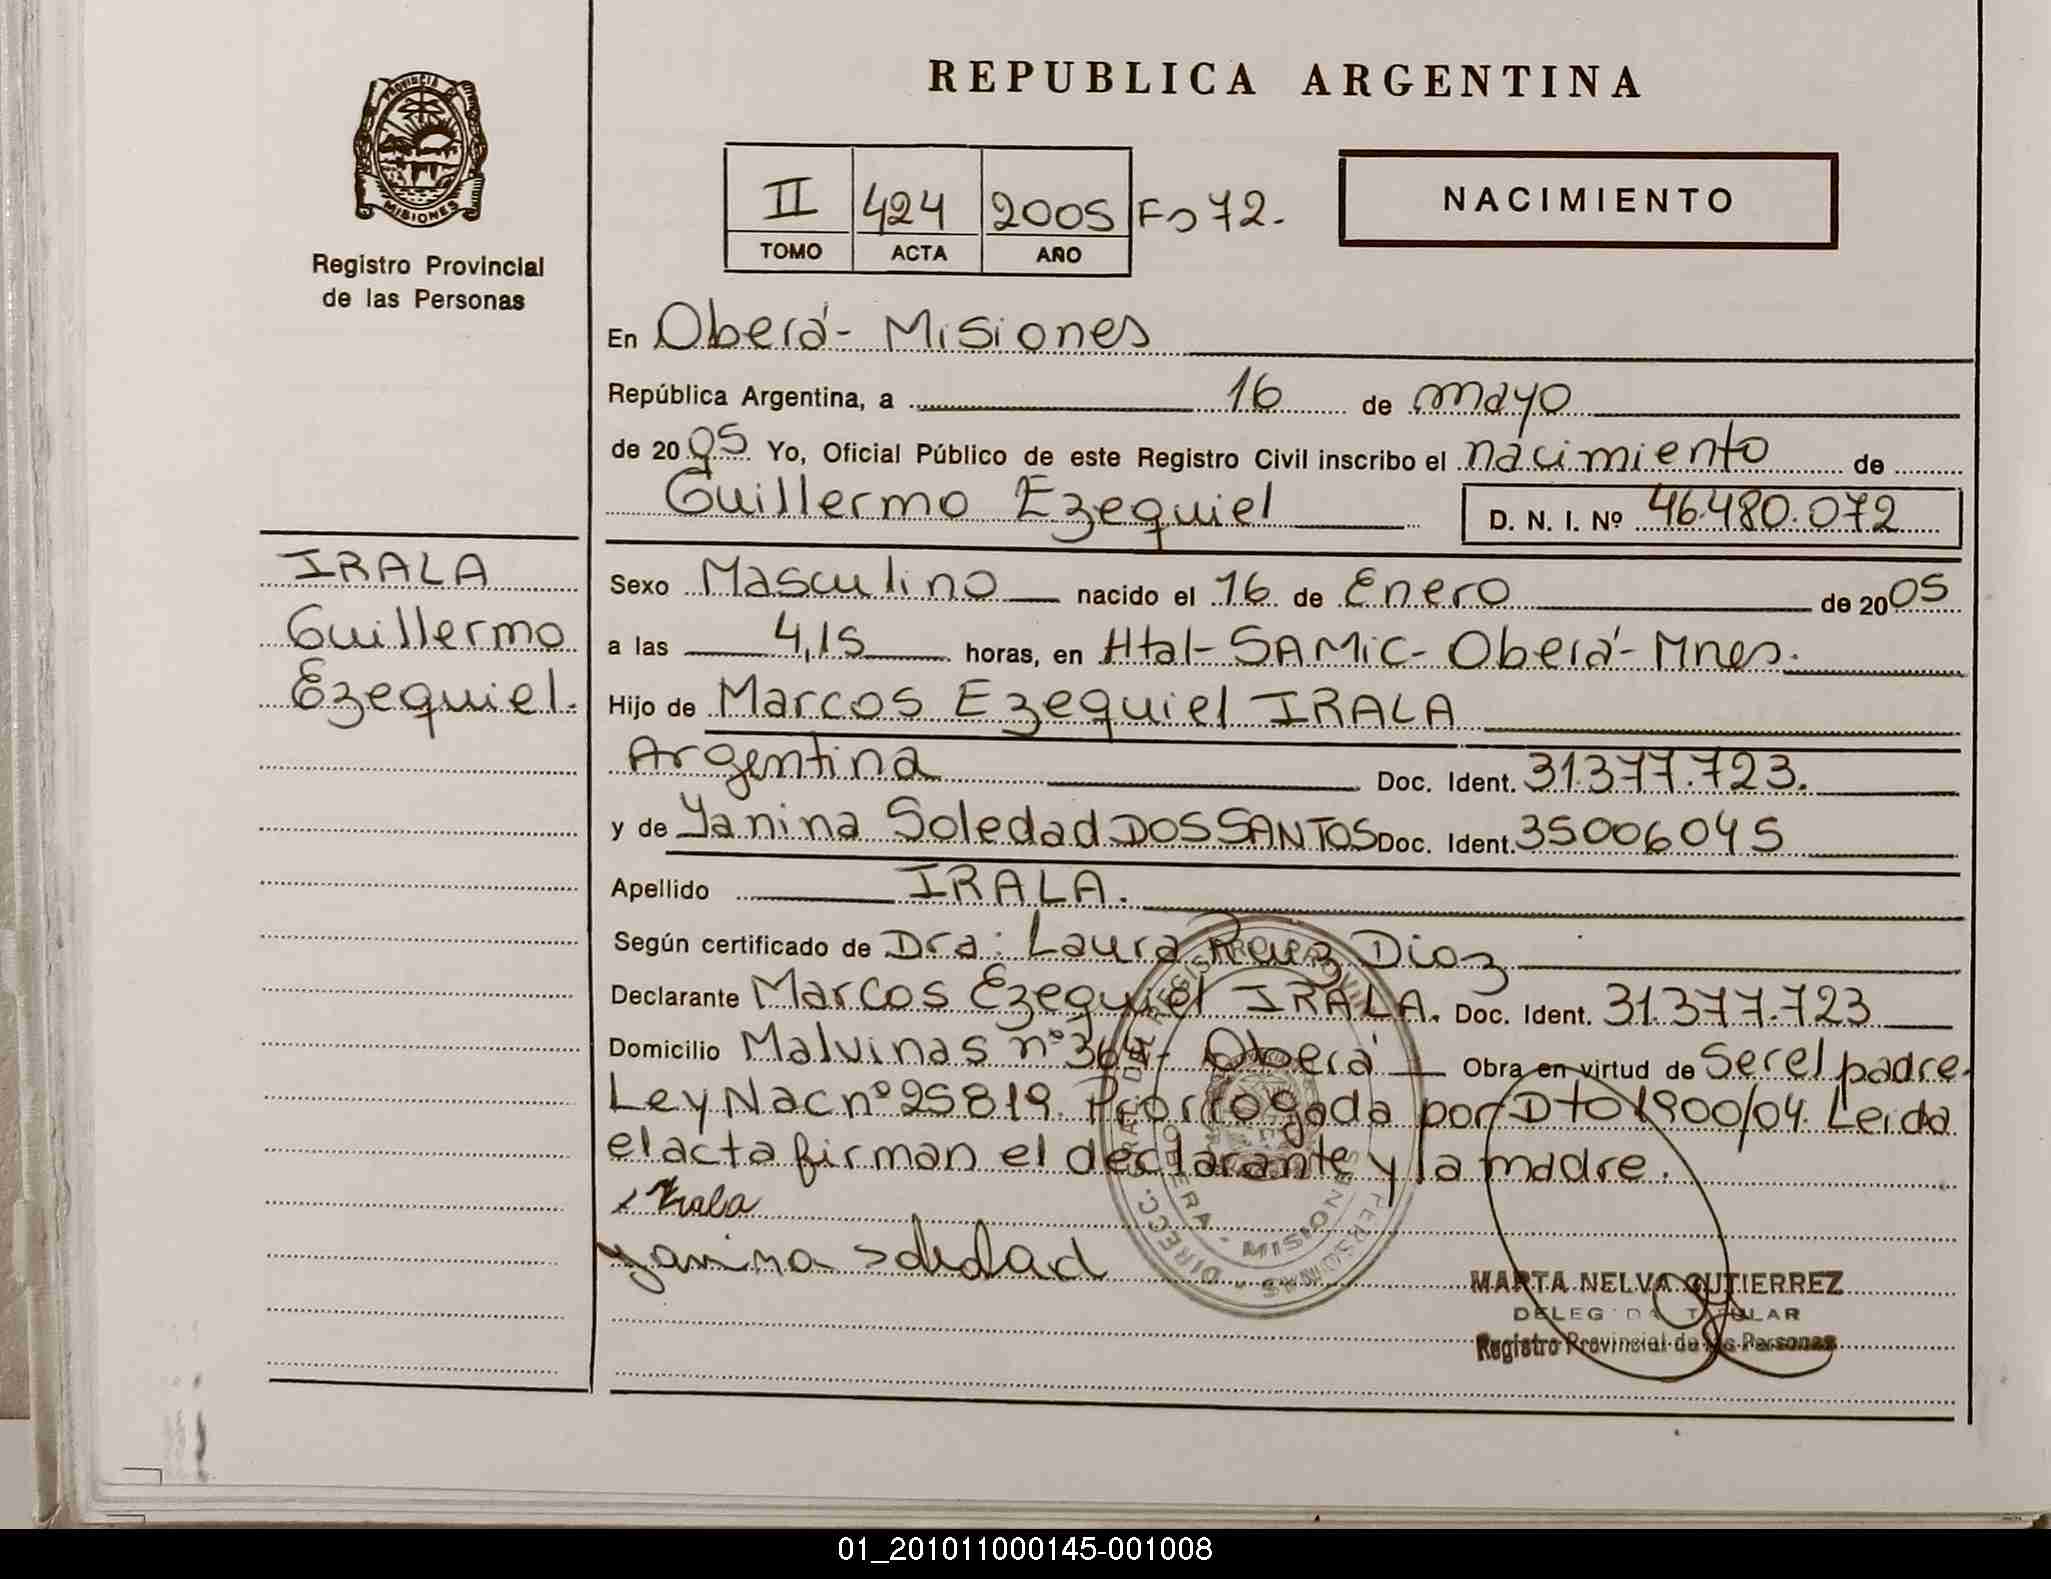 PROVINCIA DE
MISIONES
Registro Provincial
de las Personas
REPUBLICA ARGENTINA
II 424 2005 Fo 72.
TOMO ACTA AÑO
NACIMIENTO
En Oberá - Misiones
República Argentina, a 16 de mayo
de 2005 Yo, Oficial Público de este Registro Civil inscribo el nacimiento de
Guillermo Ezequiel D. N. I. Nº 46.480.072
IRALA
Guillermo
Ezequiel.
Sexo Masculino nacido el 16 de Enero de 2005
a las 4,15 horas, en Htal - SAMIC - Oberá - Mnes.
Hijo de Marcos Ezequiel IRALA
Argentina Doc. Ident. 31.377.723.
y de Yanina Soledad DOS SANTOS Doc. Ident. 35006045
Apellido IRALA.
Según certificado de Dra: Laura Diaz
Declarante Marcos Ezequiel IRALA. Doc. Ident. 31.377.723
Domicilio Malvinas nº 364 - Oberá Obra en virtud de Ser el padre.
Ley Nac nº 25819. Prorrogada por DTO 1900/04. Leida
el acta firman el declarante y la madre.
Irala
yanina soledad
MARTA NELVA GUTIERREZ
DELEGADA TITULAR
Registro Provincial de las Personas
01_201011000145-001008